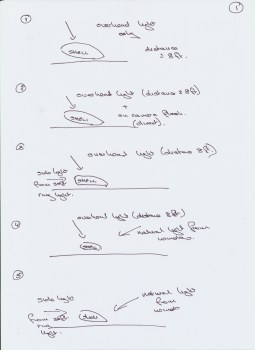 1
1
overhead light
only
distance
= 8ft.
SHELL
overhead light (distance 8ft)
+
on camera flash
(direct).
SHELL
overhead light (distance 8ft).
side light
from soft
ring light.
SHELL
4
overhead light (distance 8ft)
natural light from
window
SHELL
side light
from soft
ring
light.
natural light
from
window
SHELL